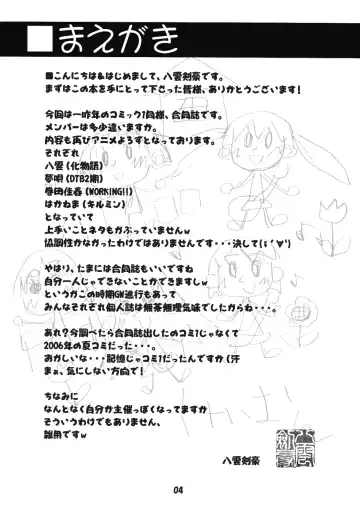 ■まえがき
■こんにちは&はじめまして、八雲剣豪です。
まずはこの本を手にとって下さった皆様、ありがとうございます!
今回は一昨年のコミック1同様、合同誌です。
メンバーは多少違いますが。
内容も再びアニメよろずとなっております。
それぞれ
八雲(化物語)
夢唄(DTB2期)
巻田佳春(WORKING!!)
はかねま(キルミン)
となっていて
上手いことネタもかぶっていませんw
協調性がなかったわけではありません・・・決して(;´∀`)
やはり、たまには合同誌もいいですね
自分一人じゃできないことができますしw
というかこの時期GW進行もあって
みんなそれぞれ個人誌は無茶無理気味でしたからね・・・。
あれ?今調べたら合同誌出したのコミ1じゃなくて
2006年の夏コミだった・・・。
おかしいな・・・記憶じゃコミ1だったんですが(汗
まぁ、気にしない方向で!
ちなみに
なんとなく自分が主催っぽくなってますが
そういうわけでもありません、
雑用ですw
八雲剣豪
04